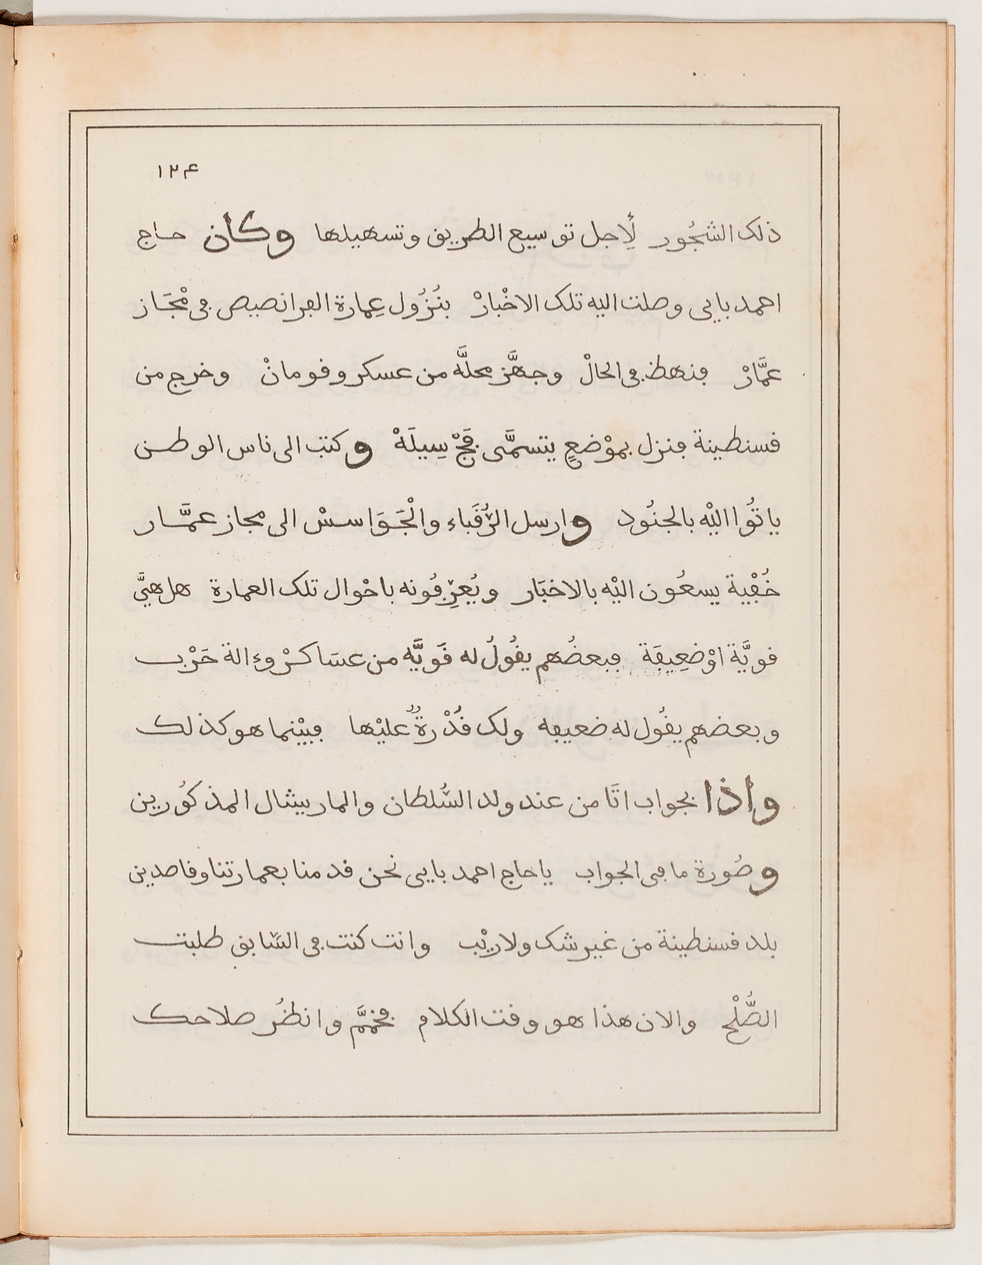 ١٢٤
ذلك الشجُور لِأجل توسيع الطريق وتسهيلها وكان حاج
احمد بايى وصلت اليه تلك الاخْبارْ بنُزُول عِمارة الفرانصيص في مْجَاز
عمَّارْ فنهظ في الحالْ وجهَّز محلَّه من عسكر وقومانْ وخرج من
قسنطينة فنزل بموْضعٍ يتسمَّى فَجّْ سِيلَهْ وكتب الى ناس الوطن
ياتُوا اليْه بالجنُود وارسل الرُّقَباء والْجَوَاسسْ الى مجاز عمَّار
خُفْية يسعُون اليْه بالاخبَار ويُعرِّفُونه باحْوال تلك العمارة هل هيَّ
قويَّة اوْ ضعِيفَة فبعضُهم يقُولُ له قَويَّه من عسَاكرْ وءالة حَرْب
وبعضهم يقُول له ضعيفه ولك قُدْرةٌ عليْها فبيْنما هو كذلك
واذا بجواب اتَا من عند ولد السُّلطان والماريشال المذكُورين
وصُورة ما في الجواب ياحاج احمد بايى نحن قدمنا بعمارتنا وقاصدين
بلد قسنطينة من غير شك ولا ريْب وانت كنت في السَّابق طلبت
الصُّلْح والان هذا هو وقت الكلام فخمَّم وانظُر صلاحك